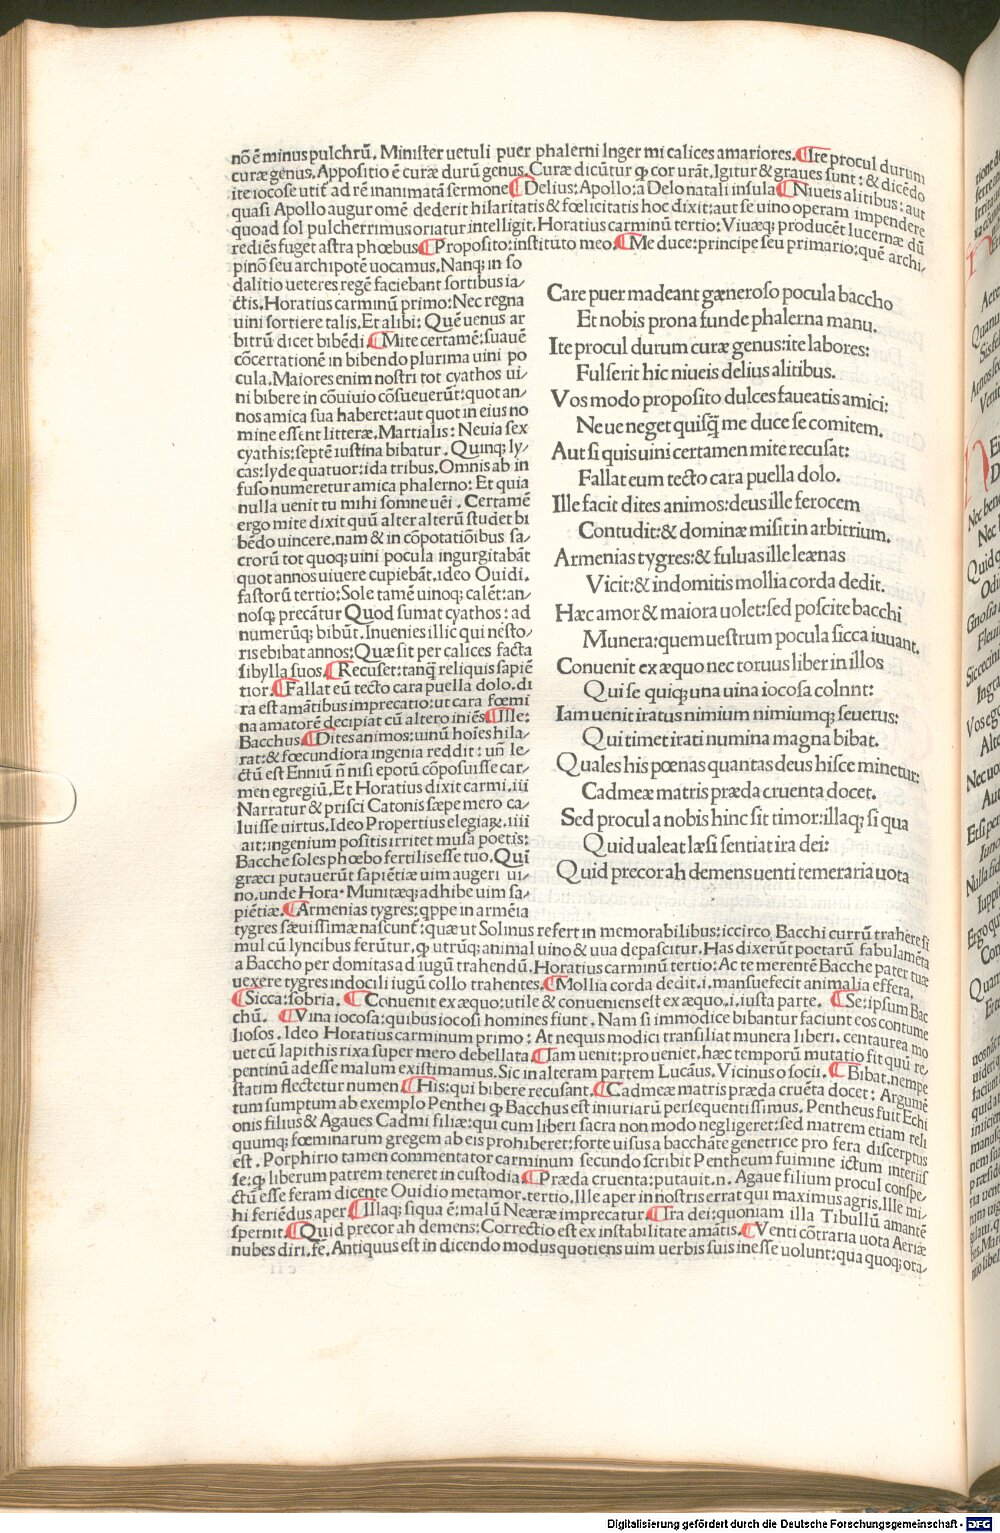 nō ē minus pulchrū. Minister uetuli puer phalerni Inger mi calices amariores. ¶Ite procul durum
curæ genus. Appositio ē curæ durū genus. Curæ dicūtur ꝙ cor urāt. Igitur & graues sunt: & dicēdo
ite iocose utit᷑ ad rē inanimatā sermone ¶Delius: Apollo: a Delo natali insula ¶Niueis alitibus: aut
quasi Apollo augur omē dederit hilaritatis & fœlicitatis hoc dixit: aut se uino operam impendere
quoad sol pulcherrimus oriatur intelligit. Horatius carminū tertio: Viuæq; producēt lucernæ dū
rediēs fuget astra phœbus ¶Proposito: instituto meo. ¶Me duce: principe seu primario: quē archi/
pinō seu archipotē uocamus. Nanq; in so
dalitio ueteres regē faciebant sortibus ia/
ctis. Horatius carminū primo: Nec regna
uini sortiere talis. Et alibi: Quē uenus ar
bitrū dicet bibēdi. ¶Mite certamē: suauē
cōcertationē in bibendo plurima uini po
cula. Maiores enim nostri tot cyathos ui/
ni bibere in cōuiuio cōsueuerūt: quot an/
nos amica sua haberet: aut quot in eius no
mine essent litteræ. Martialis: Neuia sex
cyathis: septē iustina bibatur. Quinq; ly/
cas: lyde quatuor: ida tribus. Omnis ab in
fuso numeretur amica phalerno: Et quia
nulla uenit tu mihi somne uēi. Certamē
ergo mite dixit quū alter alterū studet bi
bēdo uincere. nam & in cōpotatiōibus sa/
crorū tot quoq; uini pocula ingurgitabāt
quot annos uiuere cupiebāt. ideo Ouidi.
fastorū tertio: Sole tamē uinoq; calēt: an/
nosq; precātur Quod sumat cyathos: ad
numerūq; bibūt. Inuenies illic qui nesto/
ris ebibat annos: Quæ sit per calices facta
sibylla suos. ¶Recuset: tanq̄ reliquis sapiē
tior. ¶Fallat eū tecto cara puella dolo. di
ra est amātibus imprecatio: ut cara fœmi
na amatorē decipiat cū altero iniēs ¶Ille:
Bacchus. ¶Dites animos: uinū hoīes hila/
rat: & fœcundiora ingenia reddit: un̄ le/
ctū est Enniū n̄ nisi epotū cōposuisse car/
men egregiū. Et Horatius dixit carmi. iii
Narratur & prisci Catonis sæpe mero ca/
luisse uirtus. Ideo Propertius elegiaꝝ. iiii
ait: ingenium positis irritet musa poetis:
Bacche soles phœbo fertilis esse tuo. Qui
græci putauerūt sapiētiæ uim augeri ui/
no. unde Hora. Munitæq; adhibe uim sa/
piētiæ. ¶Armenias tygres: qppe in armēia
Care puer madeant gæneroso pocula baccho
Et nobis prona funde phalerna manu.
Ite procul durum curæ genus: ite labores:
Fulserit hic niueis delius alitibus.
Vos modo proposito dulces faueatis amici:
Neue neget quisq̄ me duce se comitem.
Aut si quis uini certamen mite recusat:
Fallat eum tecto cara puella dolo.
Ille facit dites animos: deus ille ferocem
Contudit: & dominæ misit in arbitrium.
Armenias tygres: & fuluas ille leænas
Vicit: & indomitis mollia corda dedit.
Hæc amor & maiora uolet: sed poscite bacchi
Munera: quem uestrum pocula sicca iuuant.
Conuenit ex æquo nec toruus liber in illos
Qui se quiq; una uina iocosa colnnt:
Iam uenit iratus nimium nimiumq; seuerus:
Qui timet irati numina magna bibat.
Quales his pœnas quantas deus hisce minetur:
Cadmeæ matris præda cruenta docet.
Sed procul a nobis hinc sit timor: illaq; si qua
Quid ualeat læsi sentiat ira dei:
Quid precor ah demens uenti temeraria uota
tygres sæuissimæ nascunt᷑: quæ ut Solinus refert in memorabilibus: iccirco Bacchi currū trahere si
mul cū lyncibus ferūtur. ꝙ utrūq; animal uino & uua depascitur. Has dixerūt poetarū fabulamēta
a Baccho per domitas ad iugū trahendū. Horatius carminū tertio: Ac te merentē Bacche pater tuæ
uexere tygres indocili iugū collo trahentes. ¶Mollia corda dedit. i. mansuefecit animalia effera.
¶Sicca: sobria. ¶Conuenit ex æquo: utile & conueniens est ex æquo. i. iusta parte. ¶Se: ipsum Bac
chū. ¶Vina iocosa: quibus iocosi homines fiunt. Nam si immodice bibantur faciunt eos contume
liosos. Ideo Horatius carminum primo: At nequis modici transiliat munera liberi. centaurea mo
uet cū lapithis rixa super mero debellata ¶Iam uenit: pro ueniet. hæc temporū mutatio fit quū re/
pentinū adesse malum existimamus. Sic in alteram partem Lucāus. Vicinus o socii. ¶Bibat. nempe
statim flectetur numen ¶His: qui bibere recusant. ¶Cadmeæ matris præda cruēta docet: Argumē
tum sumptum ab exemplo Penthei ꝙ Bacchus est iniuriarū persequentissimus. Pentheus fuit Echi
onis filius & Agaues Cadmi filiæ: qui cum liberi sacra non modo negligeret: sed matrem etiam reli
quumq; fœminarum gregem ab eis prohiberet: forte uisus a bacchāte genetrice pro fera discerptus
est. Porphirio tamen commentator carminum secundo scribit Pentheum fuimine ictum interiis
se: ꝙ liberum patrem teneret in custodia ¶Præda cruenta: putauit. n. Agaue filium procul conspe/
ctū esse feram dicente Ouidio metamor. tertio. Ille aper in nostris errat qui maximus agris. Ille mi/
hi feriēdus aper ¶Illaq; siqua ē: malū Neæræ imprecatur. ¶Ira dei: quoniam illa Tibullū amantē
spernit. ¶Quid precor ah demens: Correctio est ex instabilitate amātis. ¶Venti cōtraria uota Aeriæ
nubes diri. fe. Antiquus est in dicendo modus quotiens uim uerbis suis inesse uolunt: qua quoq; ora/
Digitalisierung gefördert durch die Deutsche Forschungsgemeinschaft - DFG